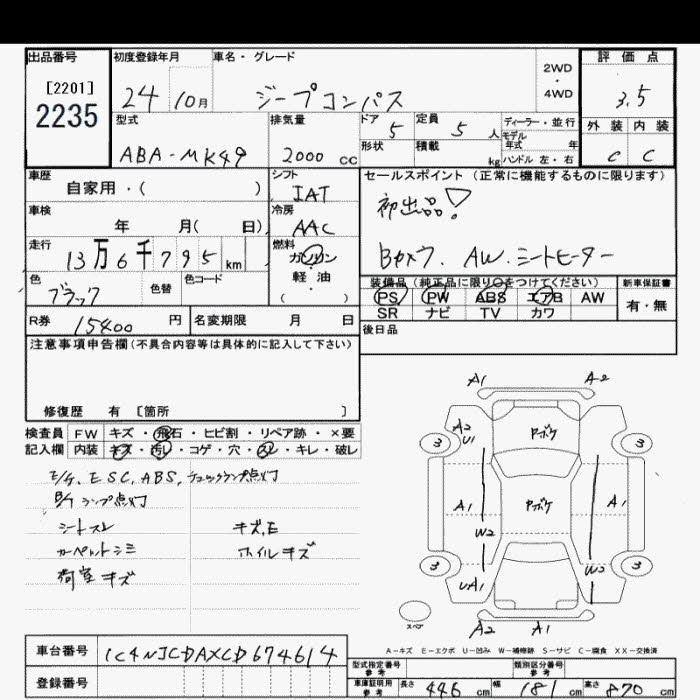 出品番号 初度登録年月 車名・グレード 評価点
[2201]
2235
24 10月 ジープコンパス 2WD・4WD 3.5
型式 排気量 ドア 5 定員 5人 ディーラー・並行
モデル年式 年
外装 内装
ABA-MK49 2000 cc 形状 積載 kg ハンドル 左・右 C C
車歴 シフト セールスポイント(正常に機能するものに限ります)
自家用・( ) IAT 初出品!
車検 冷房
年 月( 日) AAC
走行 燃料
13万6千795 km ガソリン Bカメラ.AW.シートヒーター
色 色替 色コード 軽・油
ブラック ( )
装備品(純正品に限り○をつけてください) 新車保証書
PS PW ABS エアB AW 有・無
SR ナビ TV カワ
R券 15400円 名変期限 月 日 後日品
注意事項申告欄(不具合内容等は具体的に記入して下さい)
修復歴 有 [箇所 ]
検査員 FW キズ・飛石・ヒビ割・リペア跡・×要
記入欄 内装 キズ・汚レ・コゲ・穴・スレ・キレ・破レ
E/G, ESC, ABS, チェックランプ点灯
B/K ランプ点灯
シートスレ キズ,E
カーペットシミ ホイルキズ
荷室キズ
A1 A2
A2 U1 ヤボケ
3 3
A1 ヤボケ A1
W2 W2
3 3
UA1
スペア
A2 A1
A-キズ E-エクボ U-凹み W-補修跡 S-サビ C-腐食 XX-交換済
車台番号 1C4NJCDAXCD674614
登録番号
型式指定番号 参考 類別区分番号 参考
車庫証明用 参考 長さ 446 cm 幅 181 cm 高さ 870 cm